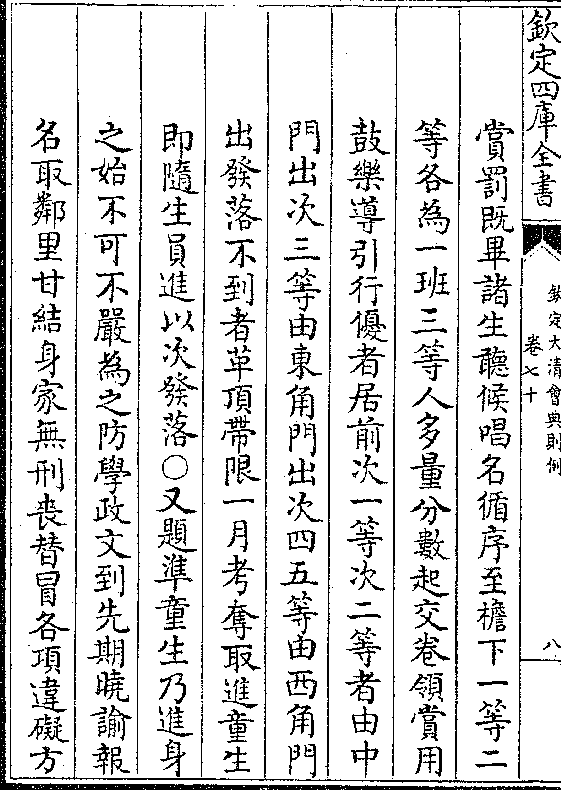 欽定四庫全書
欽定大清會典則例
卷七十
八
賞罰既畢諸生聽候唱名循序至檐下一等二
等各為一班三等人多量分數起交卷領賞用
鼓樂導引行優者居前次一等次二等者由中
門出次三等由東角門出次四五等由西角門
出發落不到者革頂帶限一月考奪取進童生
即隨生員進以次發落〇又題準童生乃進身
之始不可不嚴為之防學政文到先期曉諭報
名取鄰里甘結身家無刑喪替冒各項違礙方